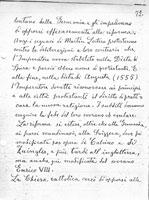 72.
lontano dalla Germania gli impedirono
di opporsi efficacemente alla riforma.
I seguaci di Martin Lutero protestarono
contro le deliberazioni a loro contrarie che
l'Imperatore aveva stabilito nella Dieta di
Spira e perciò ebbero nome di protestanti. E
alla fine, nella Dieta di Augusta (1555)
l'Imperatore dovette riconoscere ai principi
e alle città protestanti il diritto di prati=
care la nuova religione. I sudditi dovevano
seguire la fede del loro sovrano od emigrare.
La riforma si estese, oltre che alla Germania,
ai paesi scandinavi, alla Svizzera, ove fu
modificata per opera di Calvino e di
Zwinglio, e più tardi all'Inghilterra,
ma anche qui modificata dal sovrano
Enrico VIII.
La Chiesa cattolica cercò di opporsi alla